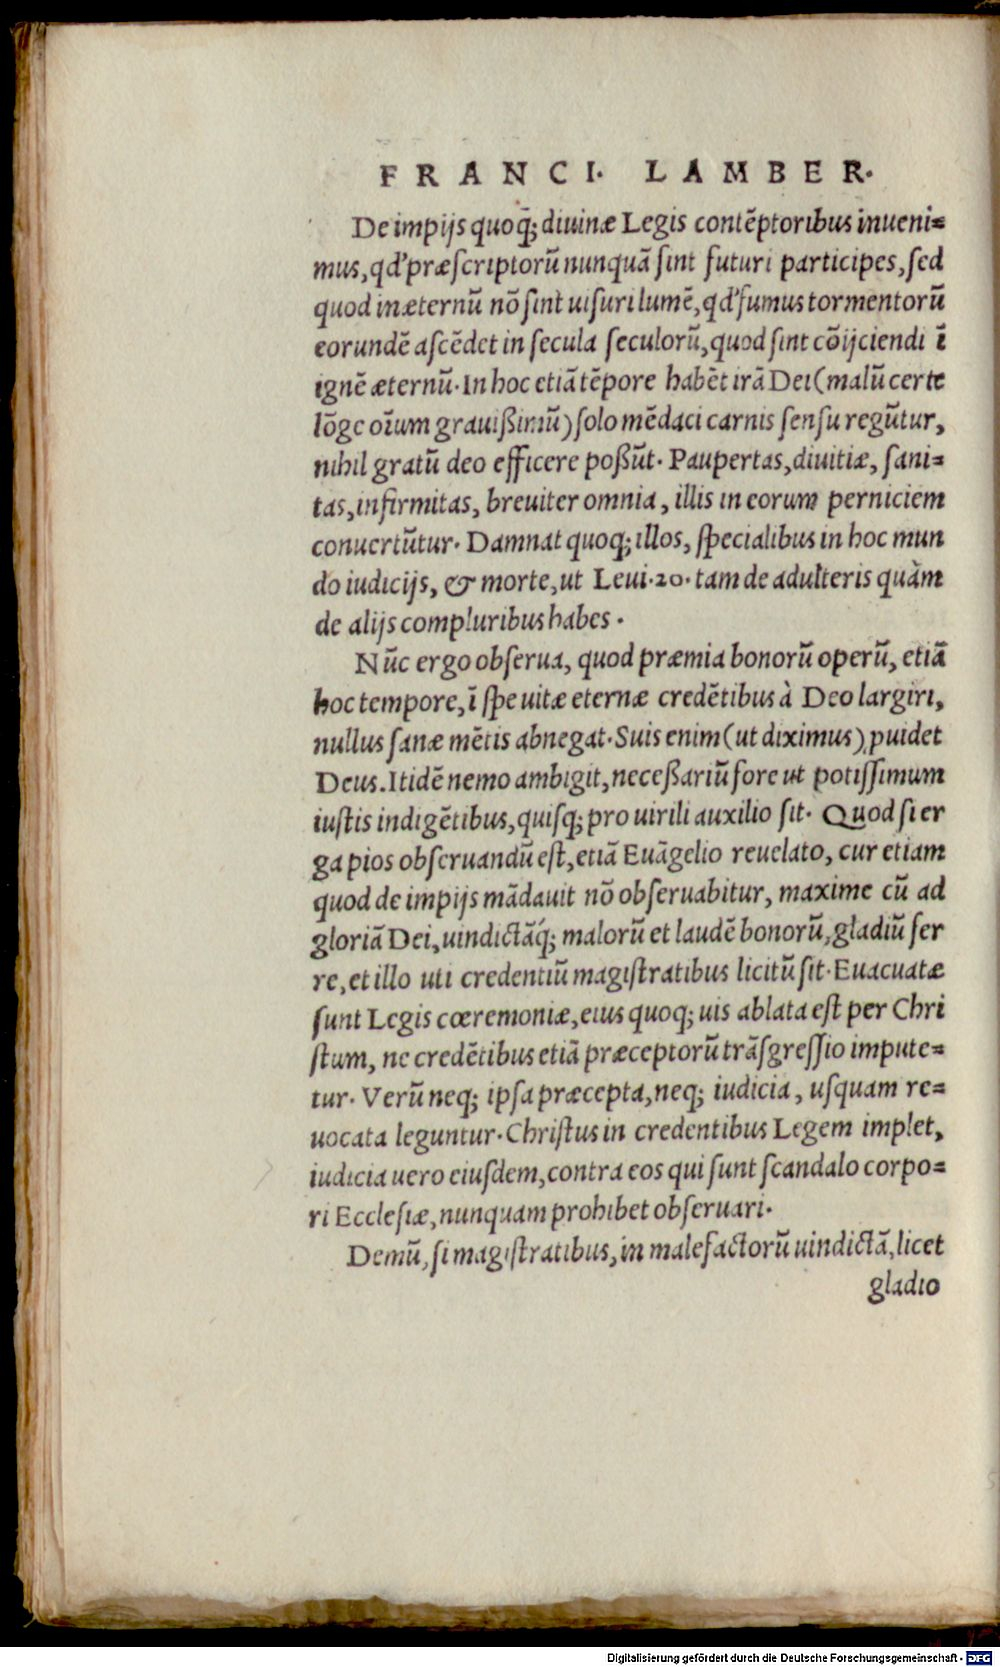 FRANCI. LAMBER.
De impijs quoq̃; diuinæ Legis contēptoribus inueni=
mus, qď præscriptorū nunquā sint futuri participes, sed
quod inæternū nō sint uisuri lumē, qď fumus tormentorū
eorundē ascēdet in secula seculorū, quod sint cōijciendi ī
ignē æternū. In hoc etiā tēpore habēt irā Dei (malū certe
lōge oīum grauißimū) solo mēdaci carnis sensu regūtur,
nihil gratū deo efficere poßūt. Paupertas, diuitiæ, sani=
tas, infirmitas, breuiter omnia, illis in eorum perniciem
conuertūtur. Damnat quoq; illos, specialibus in hoc mun
do iudicijs, & morte, ut Leui. 20. tam de adulteris quàm
de alijs compluribus habes.
Nūc ergo obserua, quod præmia bonorū operū, etiā
hoc tempore, ī spe uitæ eternæ credētibus à Deo largiri,
nullus sanæ mētis abnegat. Suis enim (ut diximus) ꝓuidet
Deus. Itidē nemo ambigit, neceßariū fore ut potissimum
iustis indigētibus, quisq; pro uirili auxilio sit. Quod si er
ga pios obseruandū est, etiā Euāgelio reuelato, cur etiam
quod de impijs mādauit nō obseruabitur, maxime cū ad
gloriā Dei, uindictāq́; malorū et laudē bonorū, gladiū fer
re, et illo uti credentiū magistratibus licitū sit. Euacuatæ
sunt Legis cœremoniæ, eius quoq; uis ablata est per Chri
stum, ne credētibus etiā præceptorū trāsgressio impute=
tur. Verū neq; ipsa præcepta, neq; iudicia, usquam re=
uocata leguntur. Christus in credentibus Legem implet,
iudicia uero eiusdem, contra eos qui sunt scandalo corpo=
ri Ecclesiæ, nunquam prohibet obseruari.
Demū, si magistratibus, in malefactorū uindictā, licet
gladio
Digitalisierung gefördert durch die Deutsche Forschungsgemeinschaft - DFG